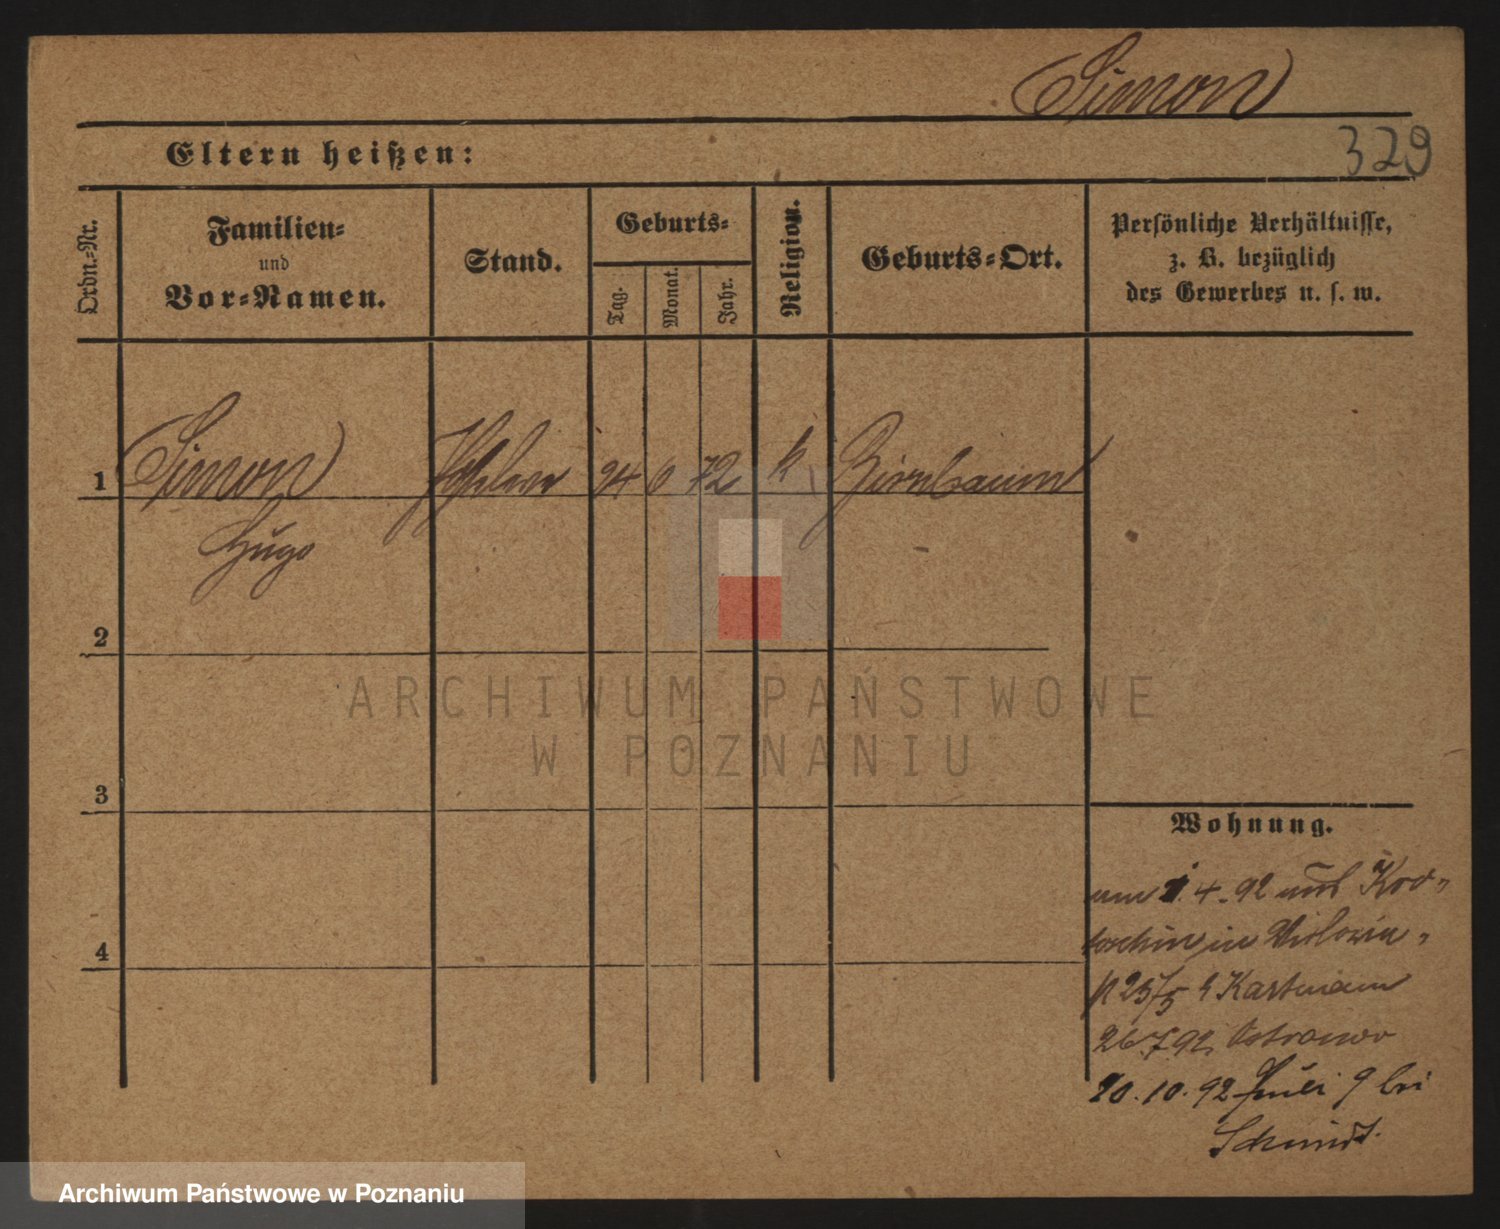 Simon
329
Eltern heißen:
Ordn.-Nr.
Familien-
und
Vor-Namen.
Stand.
Geburts-
Tag.
Monat.
Jahr.
Religion.
Geburts-Ort.
Persönliche Verhältnisse,
z. B. bezüglich
des Gewerbes u. s. w.
1 Simon 24 6 72 k Birnbaum
Hugo
2
3
4
Wohnung.
am 1. 4. 92 aus Kro-
toschin in
26.7.92 Ostrowo
10. 10. 92 9 bei
Schmidt.
ARCHIWUM PAŃSTWOWE
W POZNANIU
Archiwum Państwowe w Poznaniu